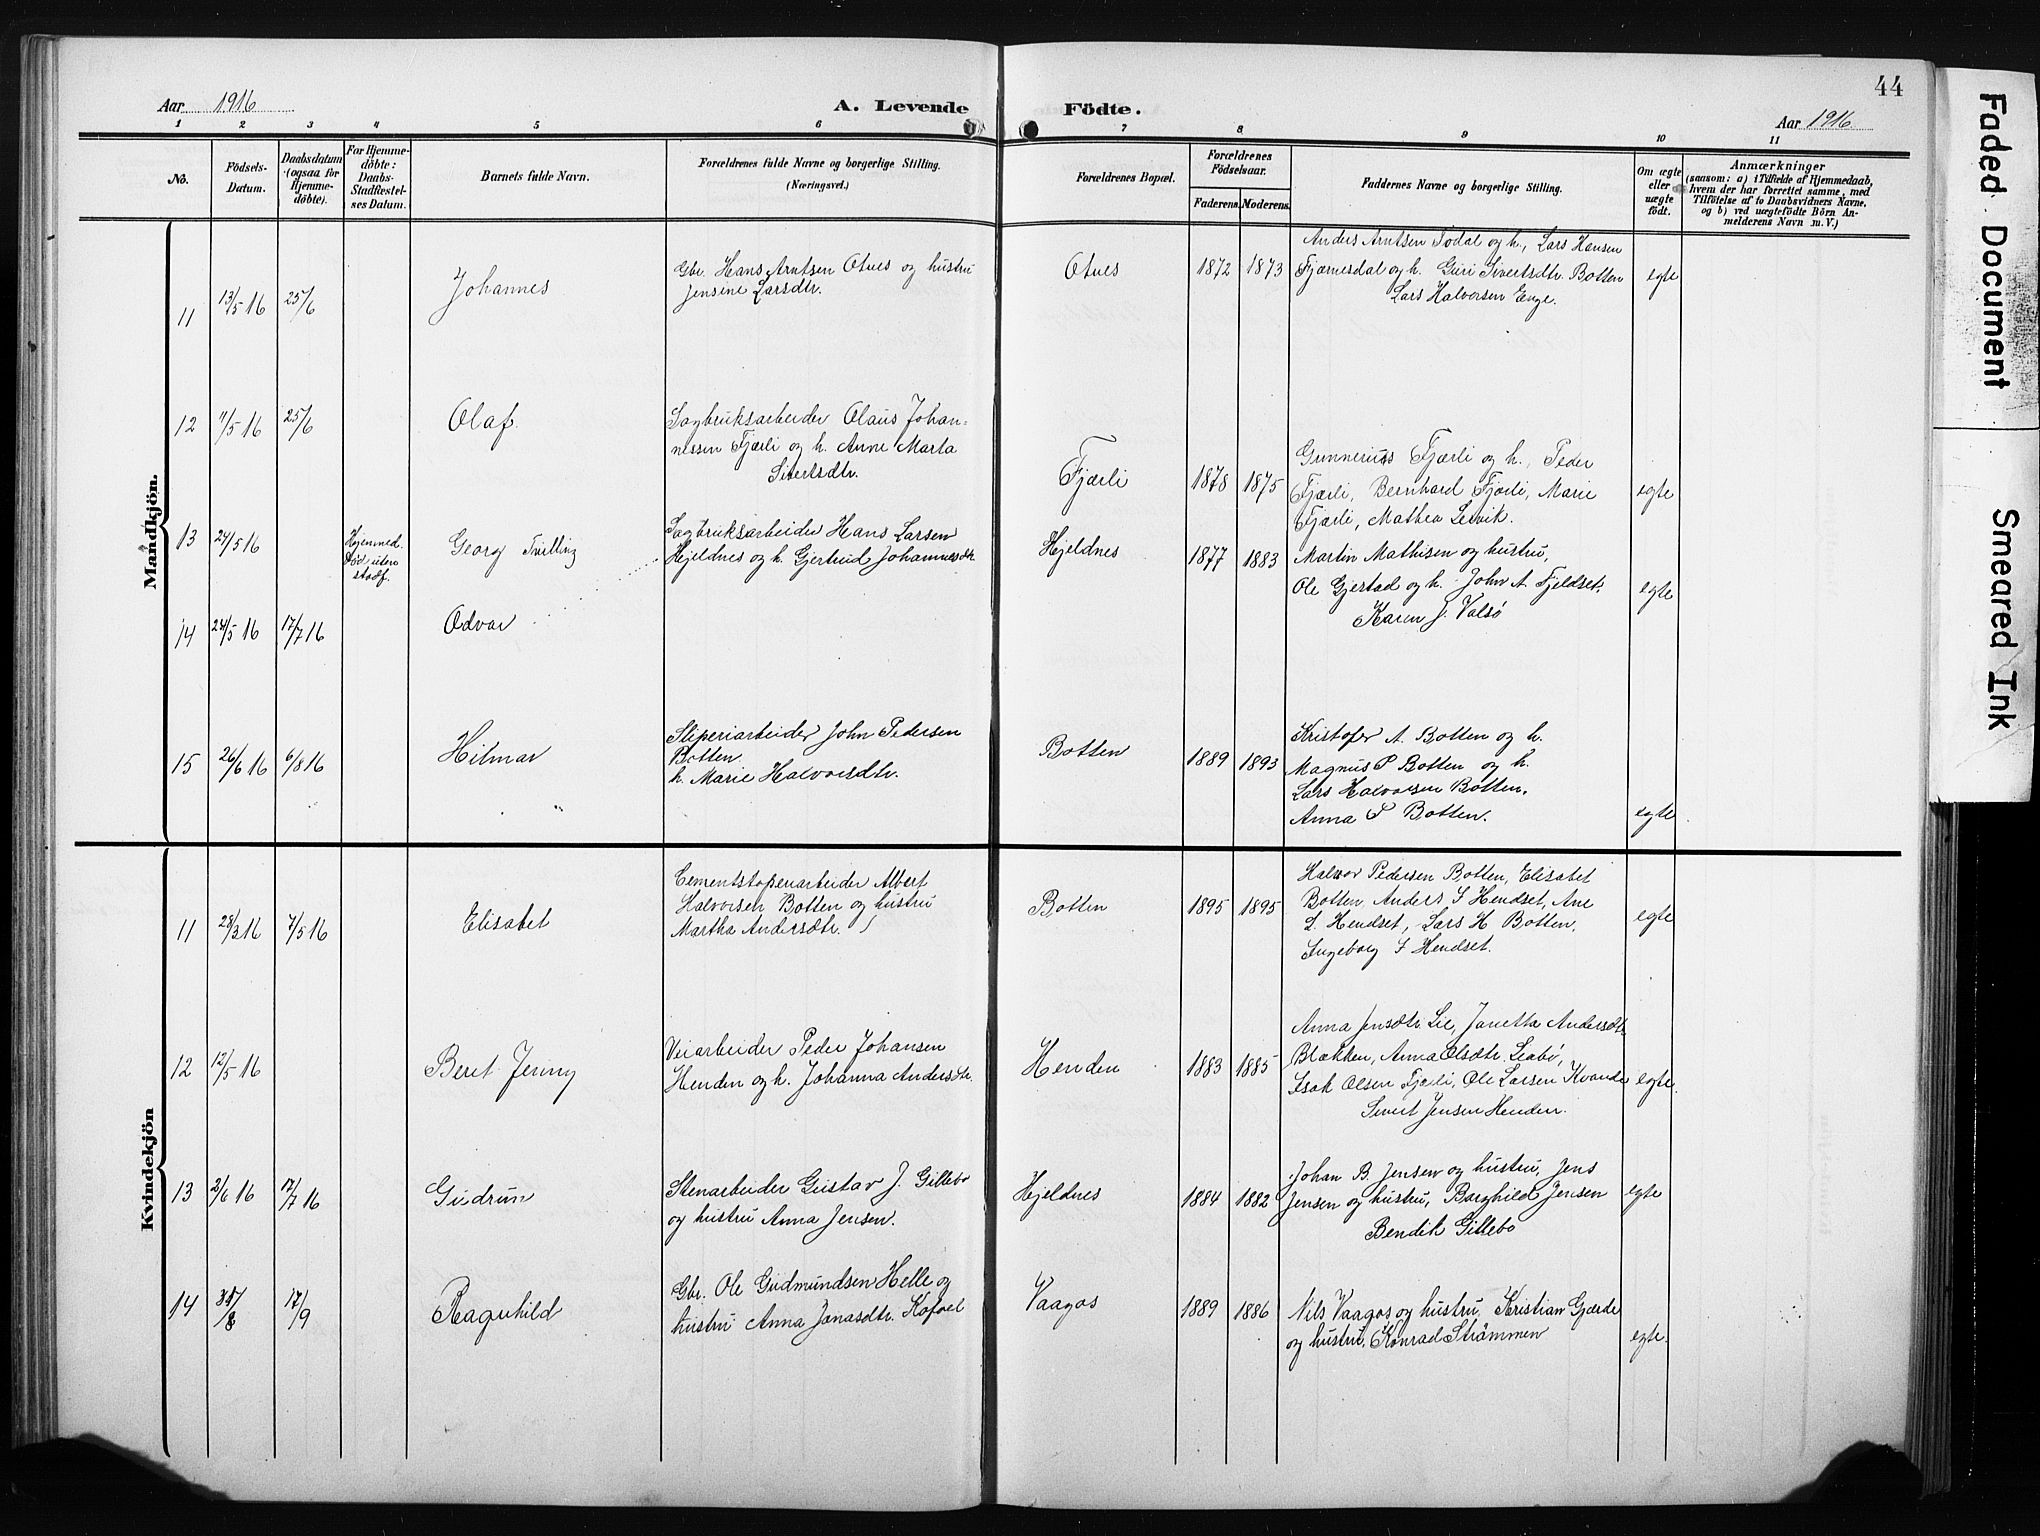 44
Aar 1916
A. Levende Födte.
Aar 1916
1 2 3 4 5 6 7 8 9 10 11
No.
Födsels-
Datum.
Daabsdatum
(ogsaa for
Hjemme-
döbte).
For Hjemme-
döbte:
Daabs-
Stadfæstel-
ses Datum.
Barnets fulde Navn.
Forældrenes fulde Navne og borgerlige Stilling.
(Næringsvei.)
Forældrenes Bopæl.
Forældrenes
Födselsaar.
Faderens. Moderens.
Faddernes Navne og borgerlige Stilling.
Om ægte
eller
uægte
födt.
Anmærkninger
(saasom: a) i Tilfælde af Hjemmedaab,
hvem der har forrettet samme, med
Tilföielse af to Daabsvidners Navne,
og b) ved uægtefödte Börn An-
melderens Navn m. V.)
Mandkjön.
11 13/5 16 25/6 Johannes
Gbr. Hans Arntsen Otnes og hustru
Jensine Larsdtr.
Otnes 1872 1873
Anders Arntsen Todal og h., Lars Hansen
Fjærnesdal og h. Guri Sivertsdtr. Botten
Lars Halvorsen Enge.
egte
12 11/5 16 25/6 Olaf
Sagbruksarbeider Olaus Johan-
nessen Fjærli og h. Anne Marta
Sivertsdtr.
Fjærli 1878 1875
Gunnerius Fjærli og h., Peder
Fjærli, Bernhard Fjærli, Marie
Fjærli, Mathea Lervik.
egte
13 24/5 16 Hjemmed.
Död uten
stadf.
Georg Tvilling
Sagbruksarbeider Hans Larsen
Hjeldnes og h. Gjertrud Johannesdtr.
Hjeldnes 1877 1883
Martin Mathisen og hustru,
Ole Gjerstad og h. John A. Fjeldset,
Karen J. Valsö
egte
14 24/5 16 17/7 16 Odvar
15 26/6 16 6/8 16 Hilmar
Sliperiarbeider John Pedersen
Botten.
h. Marie Halvorsdtr.
Botten 1889 1893
Kristofer A. Botten og h.
Magnus P Botten og h.
Lars Halvorsen Botten,
Anna P Botten.
egte
Kvindekjön
11 28/3 16 7/5 16 Elisabet
Cementstøperiarbeider Albert
Halvorsen Botten og hustru
Martha Andersdtr.
Botten 1895 1895
Halvor Pedersen Botten, Elisabet
Botten, Anders S Hendset, Ane
L. Hendset, Lars H Botten,
Ingeborg S Hendset.
egte
12 12/5 16 Beret Jenny
Veiarbeider Peder Johansen
Henden og h. Johanna Andersdtr.
Henden 1883 1885
Anna Jensdtr. Lie, Janetta Andersdtr.
Blækken, Anna Olsdtr. Leabö,
Isak Olsen Fjærli, Ole Larsen Kvande
Sivert Jensen Henden.
egte
13 2/6 16 17/7 16 Gudrun
Stenarbeider Gustav J. Gillebo
og hustru Anna Jensen.
Hjeldnes 1884 1882
Johan B. Jensen og hustru, Jens
Jensen og hustru, Borghild Jensen
Bendik Gillebo
egte
14 17/9 Ragnhild
Gbr. Ole Gudmundsen Helle og
hustru Anna Jonasdtr. Kofoel
Vaagos 1889 1886
Nils Vaagos og hustru, Kristian Gjærde
og hustru, Konrad Strömmen
egte.
Faded Document
Smeared Ink